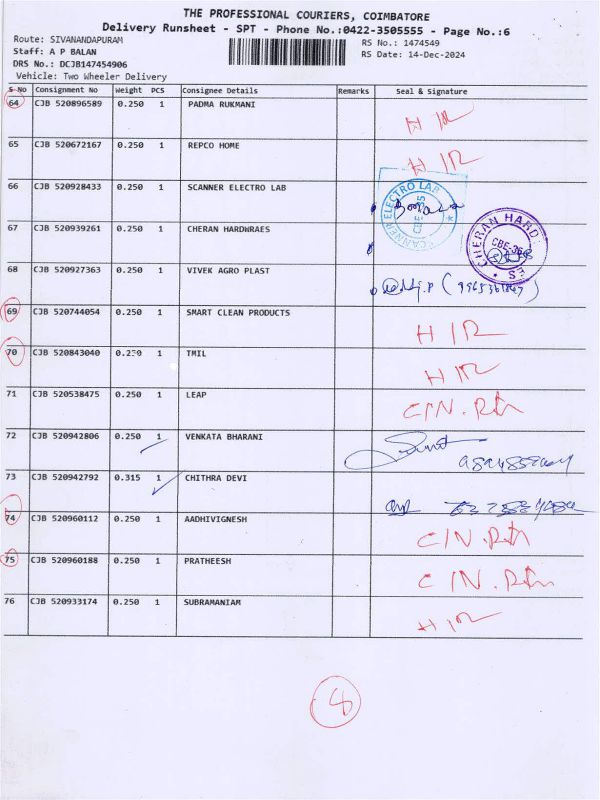 THE PROFESSIONAL COURIERS, COIMBATORE
Delivery Runsheet - SPT - Phone No.:0422-3505555 - Page No.:6
Route: SIVANANDAPURAM
Staff: A P BALAN
DRS No.: DCJB147454906
Vehicle: Two Wheeler Delivery
RS No.: 1474549
RS Date: 14-Dec-2024
S No Consignment No Weight PCS Consignee Details Remarks Seal & Signature
64 CJB 520896589 0.250 1 PADMA RUKMANI
65 CJB 520672167 0.250 1 REPCO HOME
66 CJB 520928433 0.250 1 SCANNER ELECTRO LAB
SCANNER ELECTRO LAB
67 CJB 520939261 0.250 1 CHERAN HARDWRAES
CHERAN HARD
68 CJB 520927363 0.250 1 VIVEK AGRO PLAST
69 CJB 520744054 0.250 1 SMART CLEAN PRODUCTS
70 CJB 520843040 0.250 1 TMIL
71 CJB 520538475 0.250 1 LEAP
72 CJB 520942806 0.250 1 VENKATA BHARANI
73 CJB 520942792 0.315 1 CHITHRA DEVI
74 CJB 520960112 0.250 1 AADHIVIGNESH
75 CJB 520960188 0.250 1 PRATHEESH
76 CJB 520933174 0.250 1 SUBRAMANIAM
8